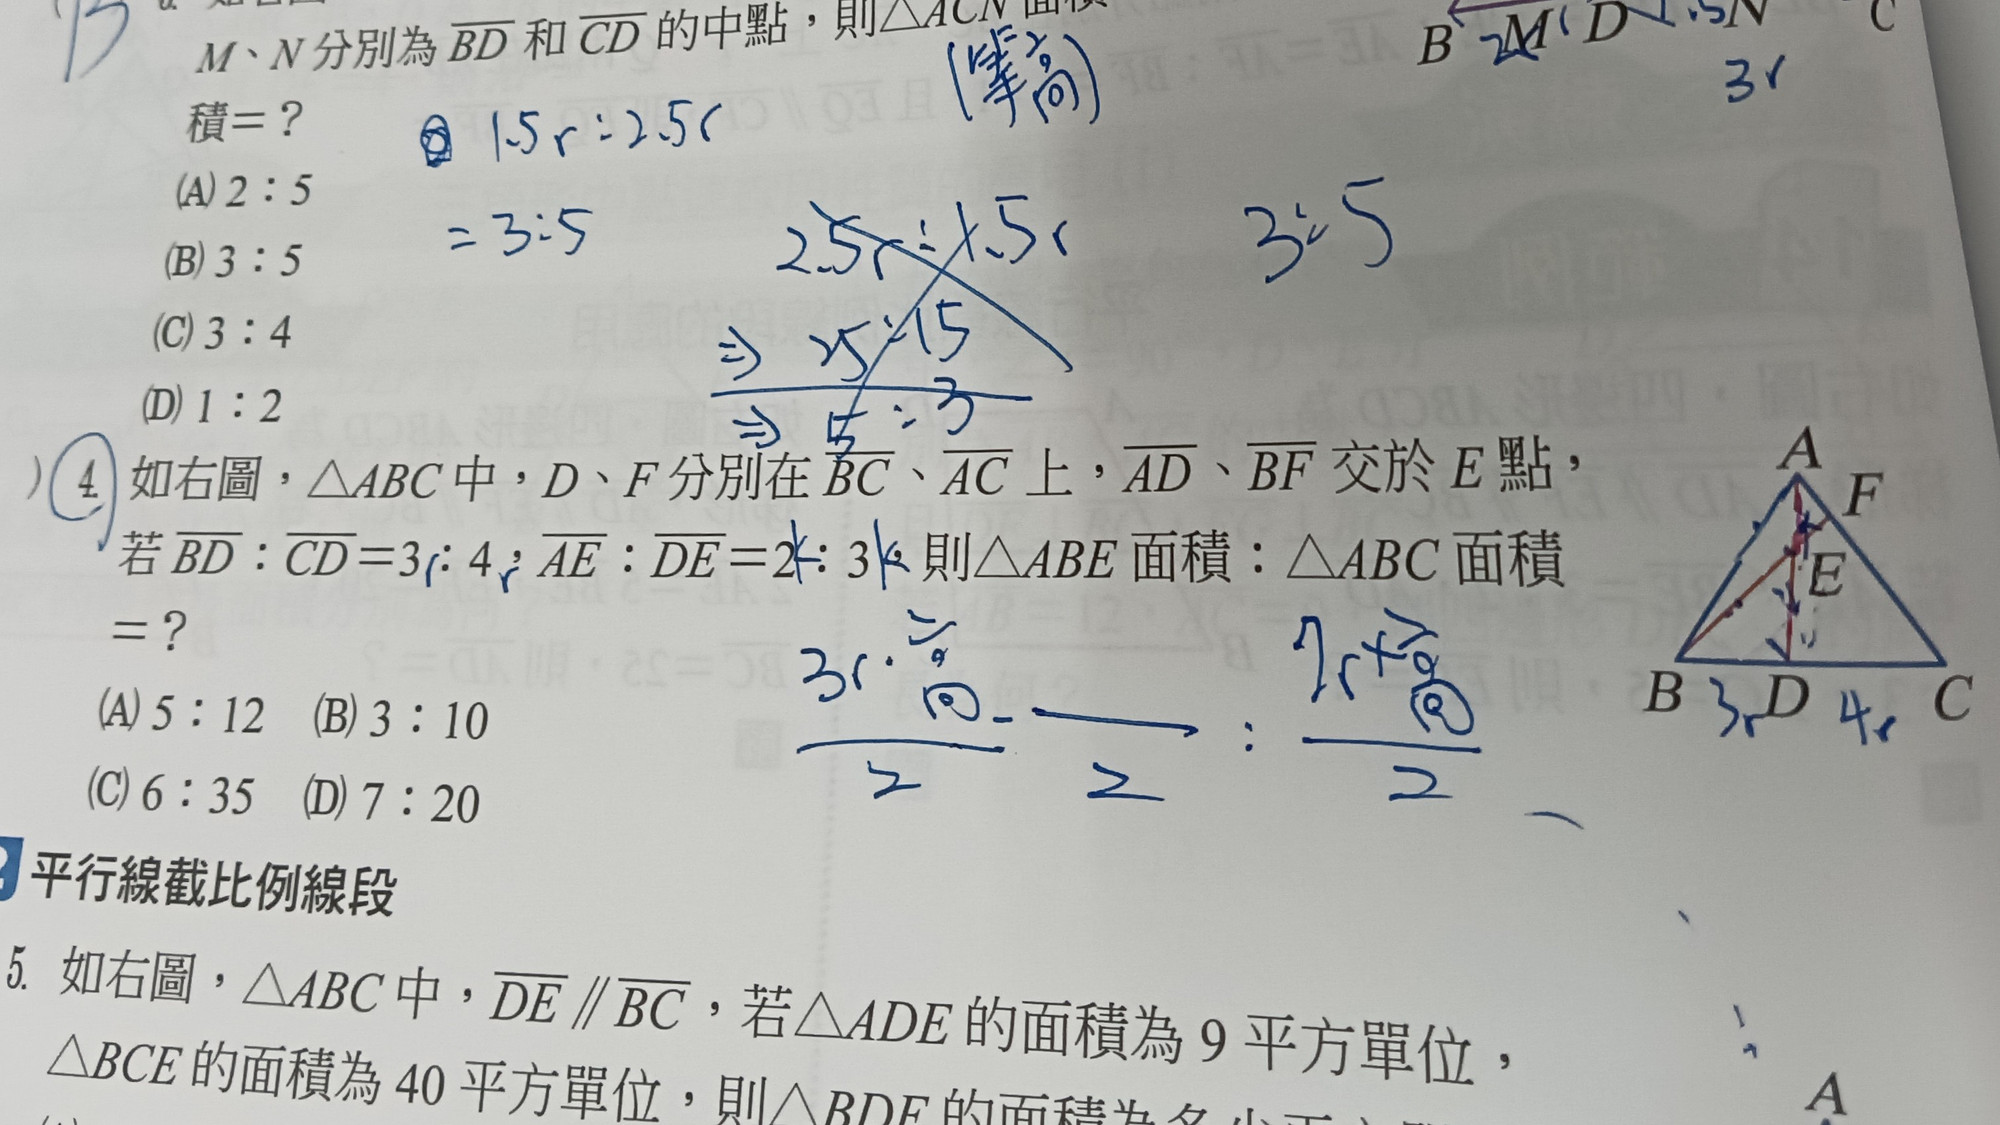 M、N 分別為 BD 和 CD 的中點，則△ACN 面積
積＝？
(等高)
1.5r:2.5r
= 3:5
(A) 2：5
(B) 3：5
(C) 3：4
(D) 1：2
2.5r:1.5r
⇒ 25:15
⇒ 5:3
3:5
B M D N C
3r
4. 如右圖，△ABC 中，D、F 分別在 BC、AC 上，AD、BF 交於 E 點，
若 BD：CD＝3r：4r，AE：DE＝2k：3k，則△ABE 面積：△ABC 面積
＝？
(A) 5：12 (B) 3：10
(C) 6：35 (D) 7：20
3r·高
2
2
:
7r×高
2
A
F
E
B D C
3r 4r
平行線截比例線段
5. 如右圖，△ABC 中，DE∥BC，若△ADE 的面積為 9 平方單位，
△BCE 的面積為 40 平方單位，則△BDE 的面積為多少平方
A